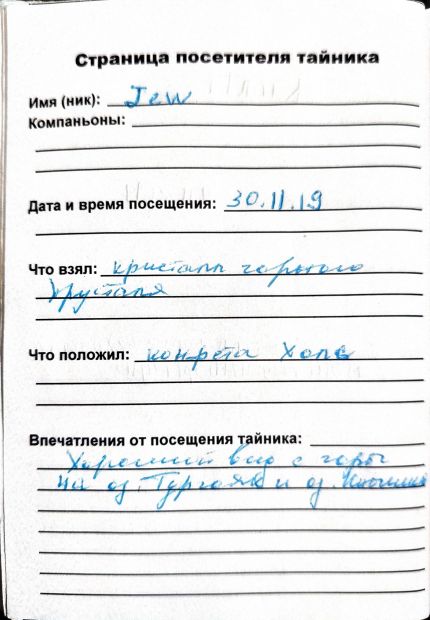 Страница посетителя тайника
Имя (ник): Jew
Компаньоны:
Дата и время посещения: 30.11.19
Что взял: кристалл горного
хрусталя
Что положил: конфета Холс
Впечатления от посещения тайника:
Хороший вид с горы
на оз. Тургояк и оз.